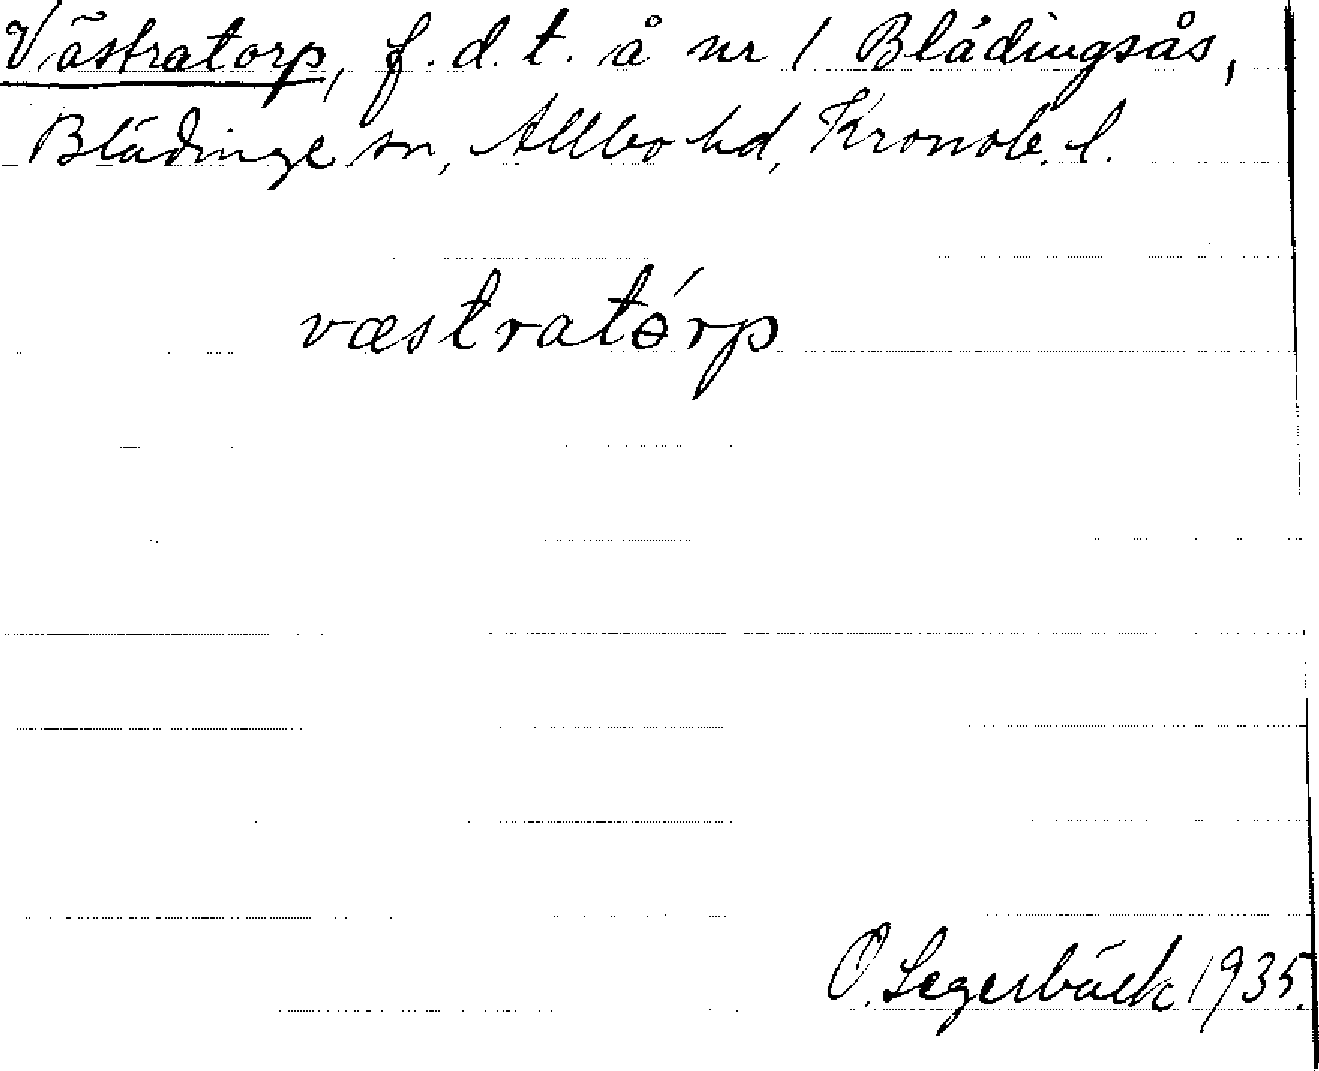 Västratorp, f.d.t. å nr 1 Blädingsås,
Blädinge sn, Allbo hd, Kronob. l.
væstratɵ́rp
O. Segerbäck 1935.